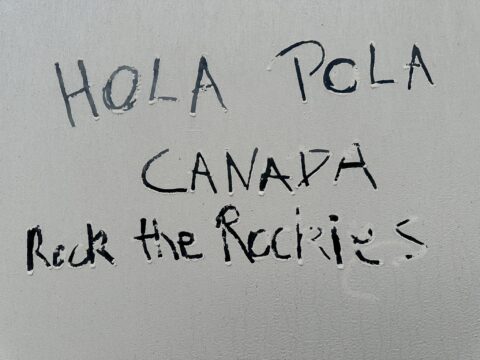 HOLA POLA
CANADA
Rock the Rockies